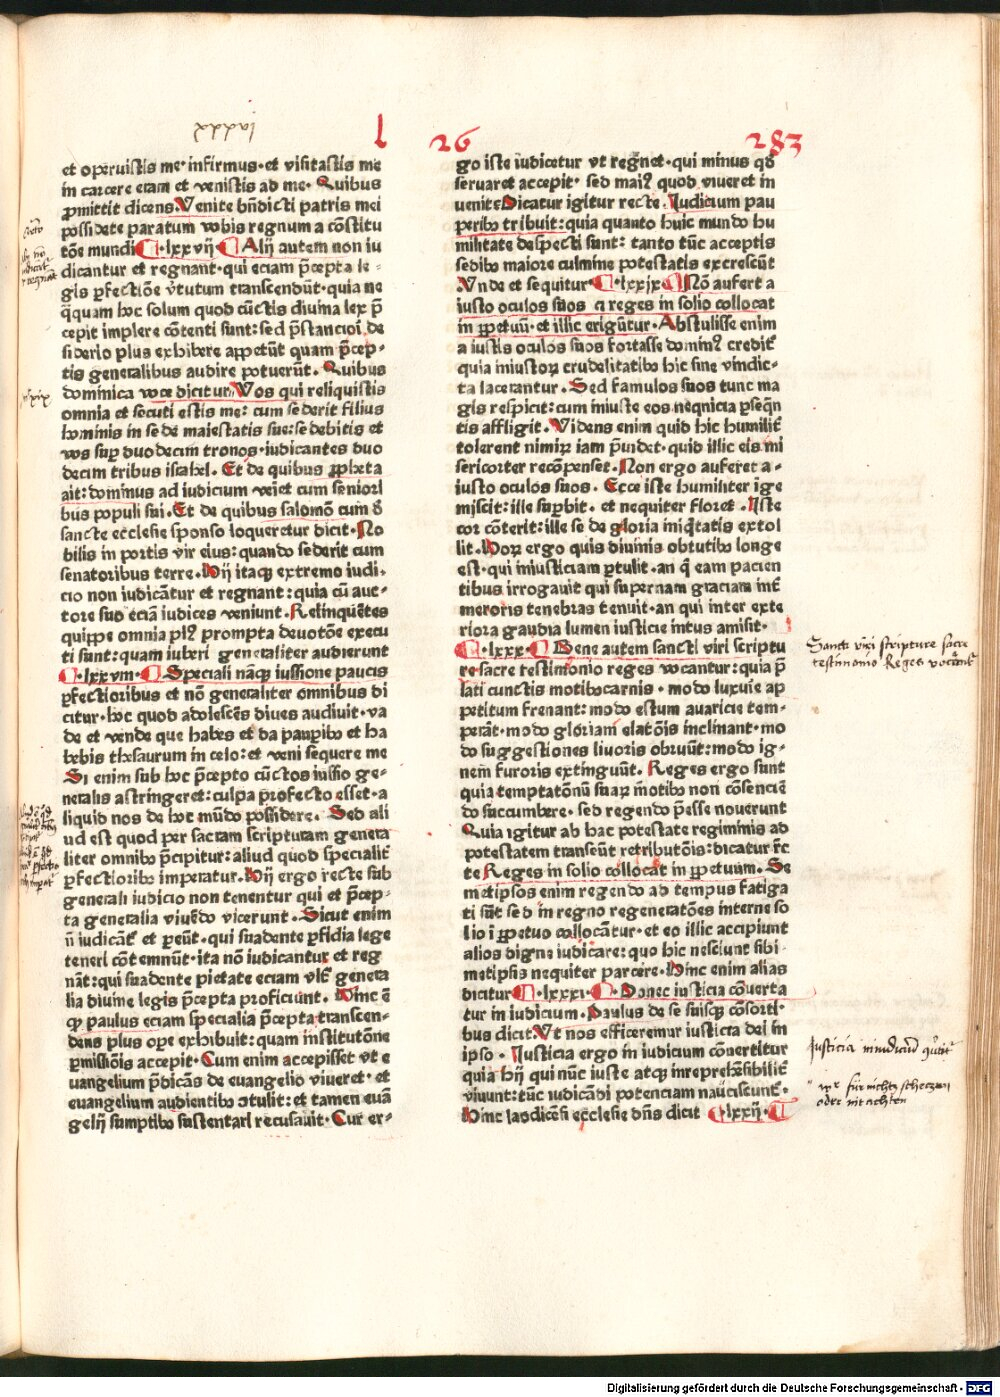 l 26 283
et operuistis me· infirmus· et visitastis me
in carcere eram et venistis ad me· Quibus
ꝓmittit dicens. Venite bn̄dicti patris mei
possidete paratum vobis regnum a cōstitu
tōe mundi ·lxxvij· Alij autem non iu
dicantur et regnant· qui eciam p̄cepta le⸗
gis ꝑfectiōe v̓tutum transcendūt· quia ne
q̄quam hoc solum quod cūctis diuina lex p̄
cepit implere cōtenti sunt: sed p̄stanciori de
siderio plus exhibere appetūt quam p̄cep⸗
tis generalibus audire potuerūt. Quibus
dominica voce dicitur. Vos qui reliquistis
omnia et secuti estis me: cum sederit filius
hominis in sede maiestatis sue: sedebitis et
vos suꝑ duodecim tronos· iudicantes duo
decim tribus israhel. Et de quibus ꝓpheta
ait: dominus ad iudicium veiet cum seniori
bus populi sui. Et de quibus salomō cum d̄
sancte ecclesie sponso loqueretur dicit· No
bilis in portis vir eius: quando sederit cum
senatoribus terre. Hij itaqꝫ extremo iudi⸗
cio non iudicātur et regnant: quia cū auc⸗
tore suo eciā iudices veniunt. Relinquētes
quippe omnia plꝰ prompta deuotōe execu
ti sunt: quam iuberi generaliter audierunt
·lxxviii· Speciali nāqꝫ iussione paucis
ꝑfectioribus et nō generaliter omnibus di
citur· hoc quod adolescēs diues audiuit· va
de et vende que habes et da pauꝑibꝫ et ha
bebis thesaurum in celo: et veni sequere me
Si enim sub hoc p̄cepto cūctos iussio ge⸗
neralis astringeret: culpa ꝓfecto esset· a
liquid nos de hoc mūdo possidere. Sed ali
ud est quod per sacram scripturam genera
liter omnibꝫ p̄cipitur: aliud quod specialit̓
ꝑfectioribꝫ imperatur. Hij ergo recte sub
generali iudicio non tenentur qui et p̄cep⸗
ta generalia viuēdo vicerunt. Sicut enim
n̄ iudicāt̓ et ꝑeūt· qui suadente ꝑfidia lege
teneri cōtemnūt· ita nō iudicantur et reg
nāt: qui suadente pietate eciam vlt̓ genera
lia diuine legis p̄cepta proficiunt. Hinc ē
ꝙ paulus eciam specialia p̄cepta transcen⸗
dens plus oꝑe exhibuit: quam institutōne
ꝑmissiōis accepit· Cum enim accepisset vt e
uangelium p̄dicās de euangelio viueret· et
euangelium audientibꝫ ɔtulit: et tamen euā
gelij sumptibꝫ sustentari recusauit· Cur er⸗
go iste iudicetur vt regnet· qui minus qd̄
seruaret accepit· sed maiꝰ quod viueret in
uenit· Dicatur igitur recte. Iudicium pau
peribꝫ tribuit: quia quanto huic mundo hu
militate despecti sunt: tanto tūc acceptis
sedibꝫ maiore culmine potestatis excrescūt
Vnde et sequitur· ·lxxix· Nō aufert a
iusto oculos suos· a reges in solio collocat
in ꝑpetuū· et illic erigūtur. Abstulisse enim
a iustis oculos suos fortasse dominꝰ credit̓
quia iniustoꝝ crudelitatibꝫ hic sine vindic⸗
ta lacerantur. Sed famulos suos tunc ma
gis respicit: cum iniuste eos neqnicia ꝑseqn
tis affligit. Videns enim quid hic humilit̓
tolerent nimiꝝ iam p̄uidet· quid illic eis mi
sericorter recōpenset. Non ergo auferet a⸗
iusto oculos suos. Ecce iste humiliter ige
miscit: ille suꝑbit· et nequiter floret. Iste
cor cōterit: ille se de gloria iniq̇tatis extol
lit. Hoꝝ ergo quis diuinis obtutibꝫ longe
est· qui iniusticiam ꝑtulit· an q̇ eam pacien
tibus irrogauit qui supernam graciam int̓
meroris tenebras tenuit· an qui inter exte
riora gaudia lumen iusticie intus amisit·
·lxxx· Bene autem sancti viri scriptu
re sacre testimonio reges vocantur: quia p̄
lati cunctis motibꝫ carnis· modo luxuie ap
petitum frenant: modo estum auaricie tem⸗
perāt· modo gloriam elatōis inclinant· mo
do suggestiones liuoris obruūt: modo ig⸗
nem furoris extinguūt. Reges ergo sunt
quia temptatōnū suaꝝ motibꝫ non cōsencie
do succumbere· sed regendo p̄esse nouerunt
Quia igitur ab hac potestate regiminis ad
potestatem transeūt retributōis: dicatur rc̄
te Reges in solio collocat in ꝑpetuum. Se
metipsos enim regendo ad tempus fatiga
ti sūt sed in regno regeneratōes interne so
lio ī ꝑpetuo collocātur· et eo illic accipiunt
alios digne iudicare: quo hic nesciunt sibi⸗
metipsis nequiter parcere. Hinc enim alias
dicitur ·lxxxi· Donec iusticia cōuerta
tur in iudicium. Paulus de se suisqꝫ cōsorti⸗
bus dicit. Vt nos efficeremur iusticia dei in
ipso· Iusticia ergo in iudicium cōnertitur
quia hij qui nūc iuste atqꝫ inreprehēsibilit̓
viuunt: tūc iudicādi potenciam nauciscunt·
Hinc laodicēsi ecclesie dn̄s dicit ·lxxij·
Sancti viri scripture sacre
testimonio Reges vocant̓
Justicia